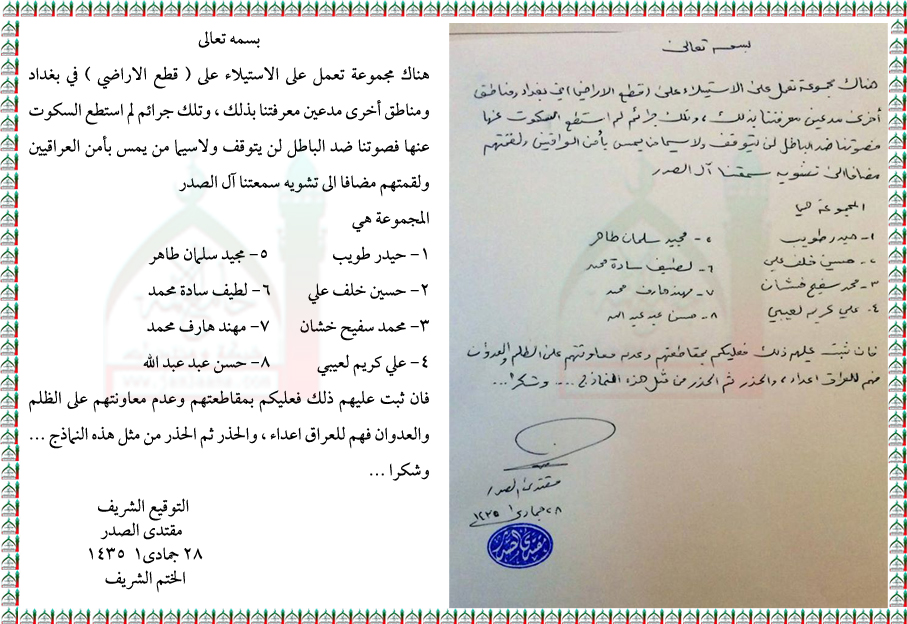 بسمه تعالى
هناك مجموعة تعمل على الاستيلاء على ( قطع الاراضي ) في بغداد
ومناطق أخرى مدعين معرفتنا بذلك ، وتلك جرائم لم استطع السكوت
عنها فصوتنا ضد الباطل لن يتوقف ولاسيما من يمس بأمن العراقيين
ولقمتهم مضافا الى تشويه سمعتنا آل الصدر
المجموعة هي
١- حيدر طويب ٥- مجيد سلمان طاهر
٢- حسين خلف علي ٦- لطيف سادة محمد
٣- محمد سفيح خشان ٧- مهند هارف محمد
٤- علي كريم لعيبي ٨- حسن عبد عبد الله
فان ثبت عليهم ذلك فعليكم بمقاطعتهم وعدم معاونتهم على الظلم
والعدوان فهم للعراق اعداء ، والحذر ثم الحذر من مثل هذه النماذج ...
وشكرا ...
التوقيع الشريف
مقتدى الصدر
٢٨ جمادى١ ١٤٣٥
الختم الشريف
بسمه تعالى
هناك مجموعة تعمل على الاستيلاء على ( قطع الاراضي ) في بغداد ومناطق
أخرى مدعين معرفتنا بذلك ، وتلك جرائم لم استطع السكوت عنها
فصوتنا ضد الباطل لن يتوقف ولاسيما من يمس بأمن العراقيين ولقمتهم
مضافا الى تشويه سمعتنا آل الصدر
المجموعة هي
١- حيدر طويب ٥- مجيد سلمان طاهر
٢- حسين خلف علي ٦- لطيف سادة محمد
٣- محمد سفيح خشان ٧- مهند هارف محمد
٤- علي كريم لعيبي ٨- حسن عبد عبد الله
فان ثبت عليهم ذلك فعليكم بمقاطعتهم وعدم معاونتهم على الظلم والعدوان
فهم للعراق اعداء ، والحذر ثم الحذر من مثل هذه النماذج .... وشكرا ...
مقتدى الصدر
٢٨ جمادى ١ ١٤٣٥